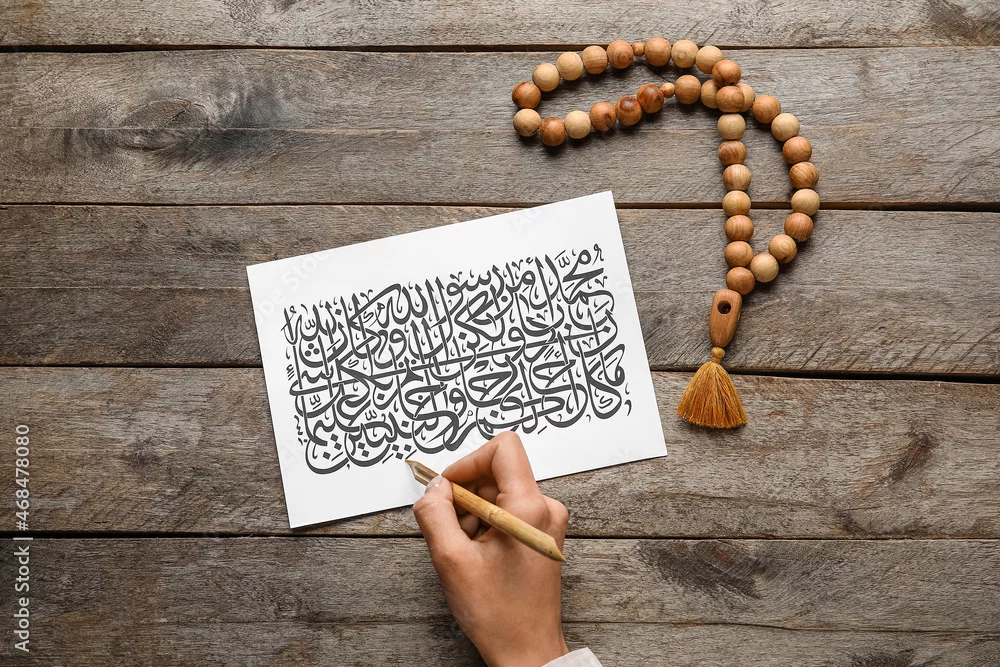 ما كان محمد أبا أحد من رجالكم ولكن رسول الله وخاتم النبيين وكان الله بكل شيء عليما
Adobe Stock | #468478080